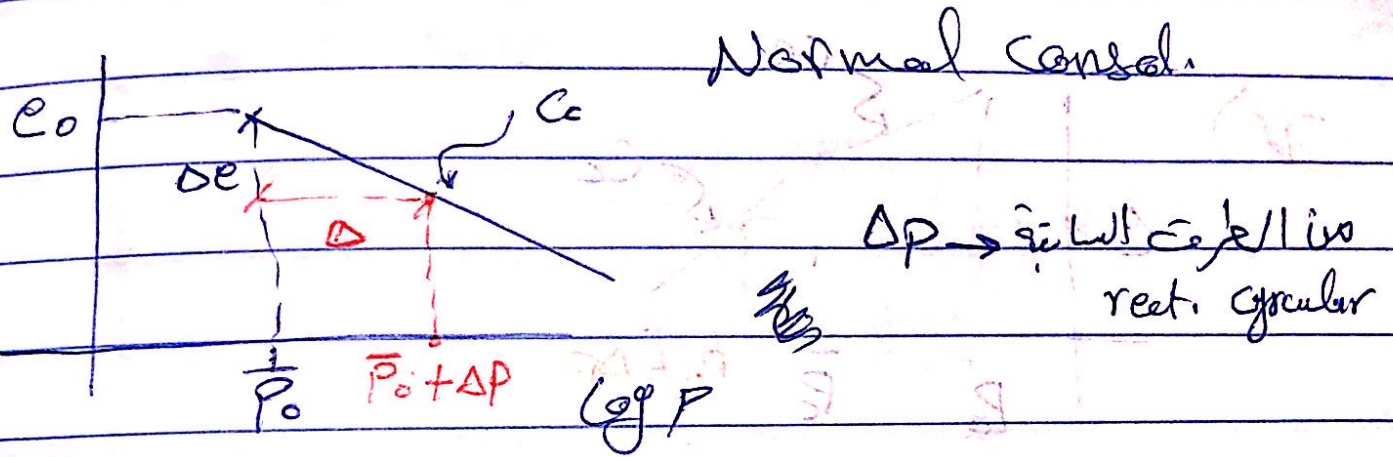 Normal Consol.
e₀
Cc
Δe
Δ
ΔP → من الطرق السابقة
rect. circular
P̅₀
P̅₀ + ΔP
log P